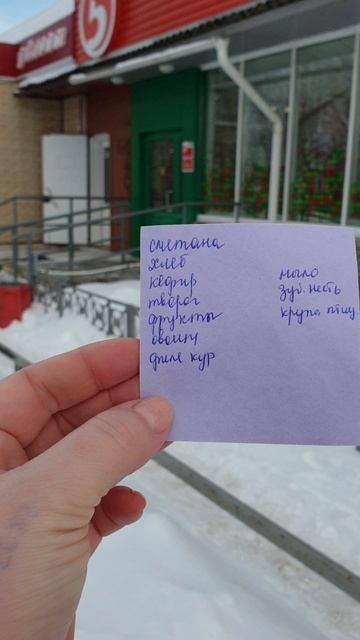 5
сметана
хлеб
кефир
творог
фрукты
овощи
филе кур
мыло
зуб. нить
крупа птиц